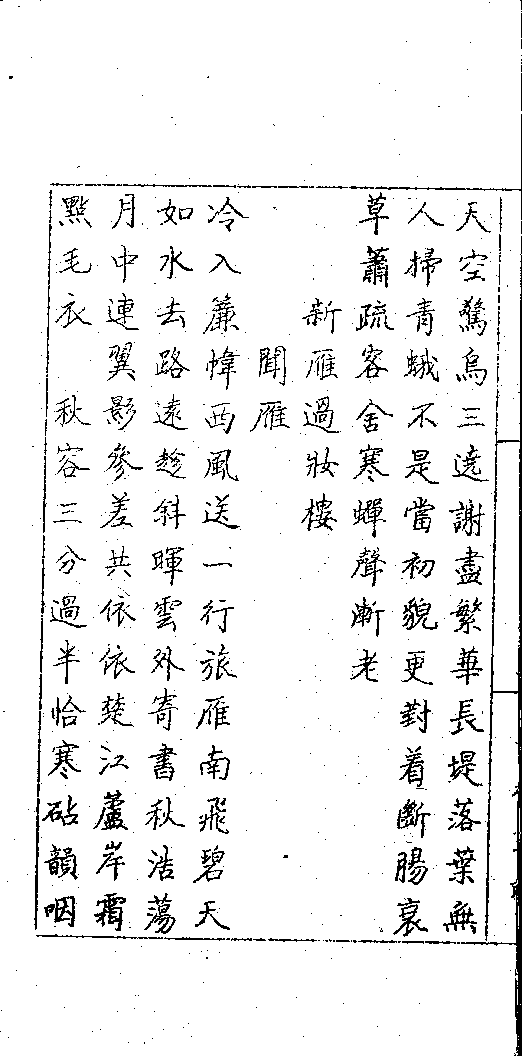 天空驚烏三遶謝盡繁華長堤落葉無
人掃青蛾不是當初貌更對着斷腸衰
草蕭疏客舍寒蟬聲漸老
新雁過妝樓
聞雁
冷入簾幃西風送一行旅雁南飛碧天
如水去路遠趁斜暉雲外寄書秋浩蕩
月中連翼影參差共依依楚江蘆岸霜
點毛衣　秋容三分過半恰寒砧韻咽